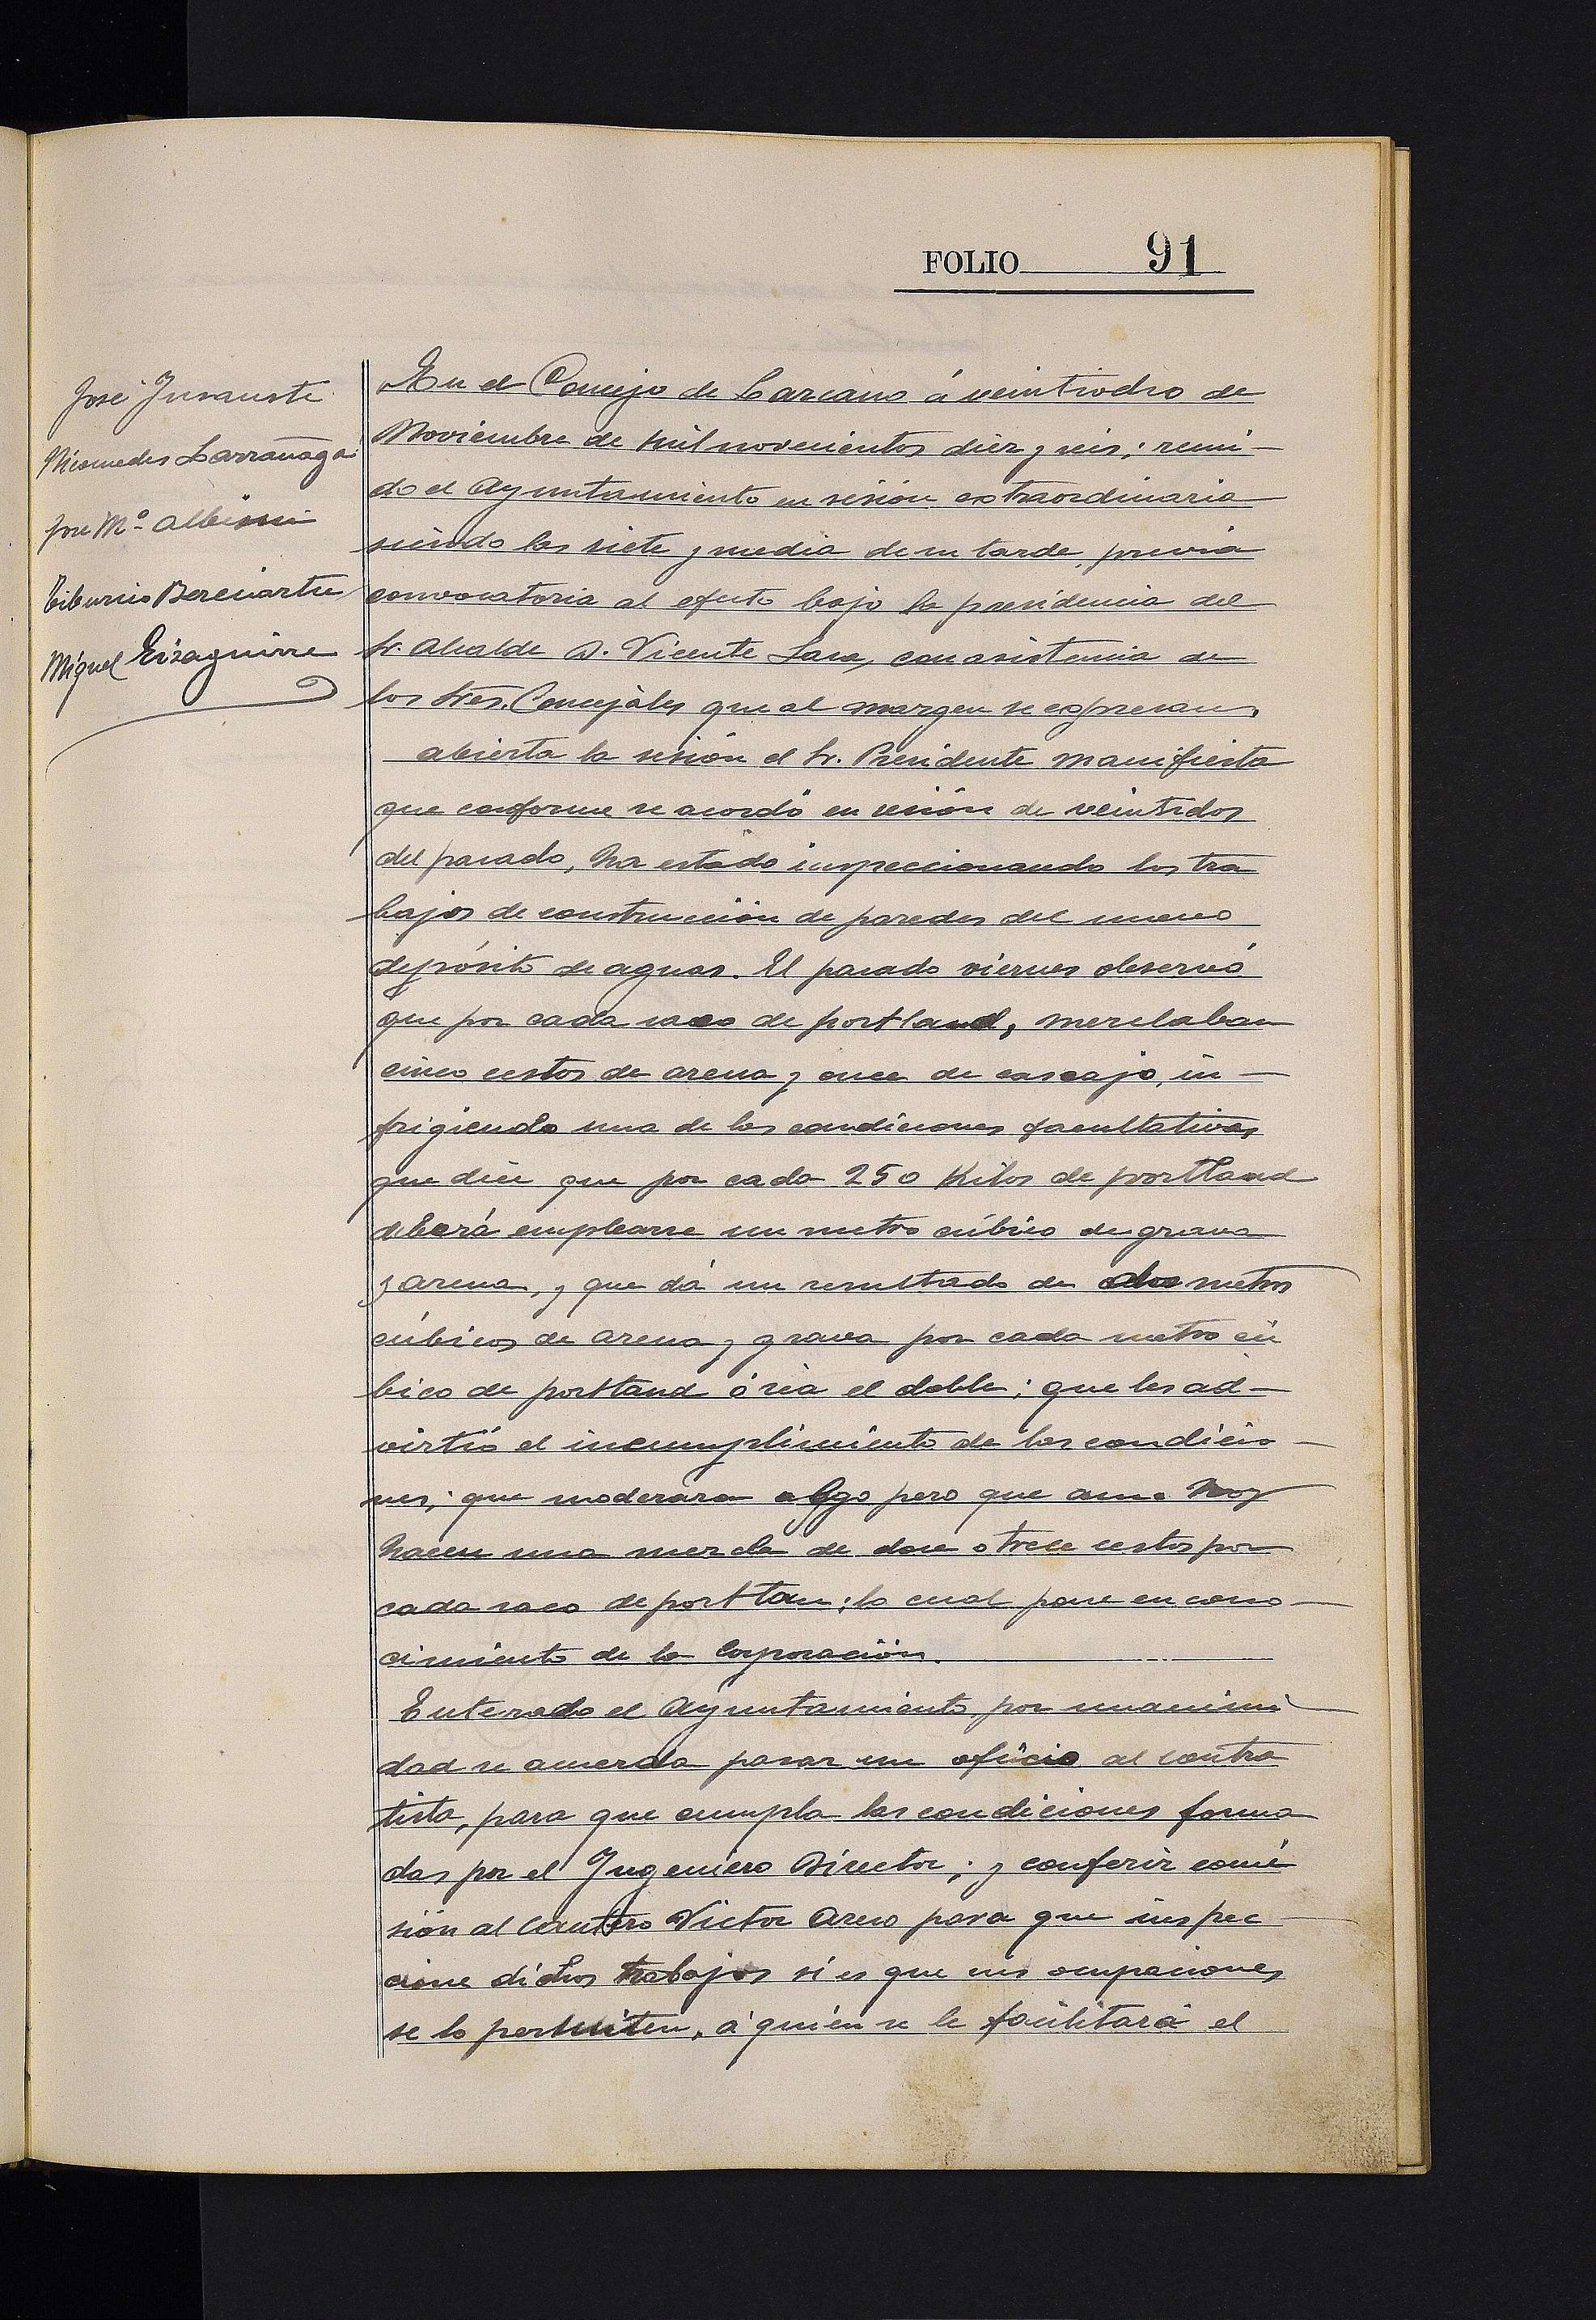 FOLIO 91
José Insausti
Nicomedes Larrañaga
José Mª Albisu
Tiburcio Bereciartu
Miguel Eizaguirre
En el Concejo de Lazcano á veintiocho de
Noviembre de mil novecientos diez y seis; reuni-
do el Ayuntamiento en sesión extraordinaria
siendo las siete y media de su tarde, previa
convocatoria al efecto bajo la presidencia del
Sr. Alcalde D. Vicente Lasa, con asistencia de
los Sres. Concejales que al margen se expresan,
abierta la sesión el Sr. Presidente manifiesta
que conforme se acordó en sesión de veintidos
del pasado, ha estado inspeccionando los tra
bajos de construcción de paredes del nuevo
depósito de aguas. El pasado viernes observó
que por cada saco de portland, mezclaban
cinco cestos de arena y once de cascajo, in-
frigiendo una de las condiciones facultativas
que dice que por cada 250 Kilos de portland
deberá emplearse un metro cúbico de grava
y arena, y que dá un resultado de dos metros
cúbicos de arena y grava por cada metro cú
bico de portland ó sea el doble; que les ad-
virtió el incumplimiento de las condicio-
nes; que moderaron algo pero que aun hoy
hacen una mezcla de doce o trece cestos por
cada saco de portlan; lo cual pone en cono-
cimiento de la Corporación.
Enterado el Ayuntamiento, por unanimi-
dad se acuerda pasar un oficio al contra
tista, para que cumpla las condiciones forma
das por el Ingeniero Director; y conferir comi
sión al Cantero Victor para que inspec-
cione dichos trabajos si es que sus ocupaciones
se lo permiten, á quién se le facilitará el